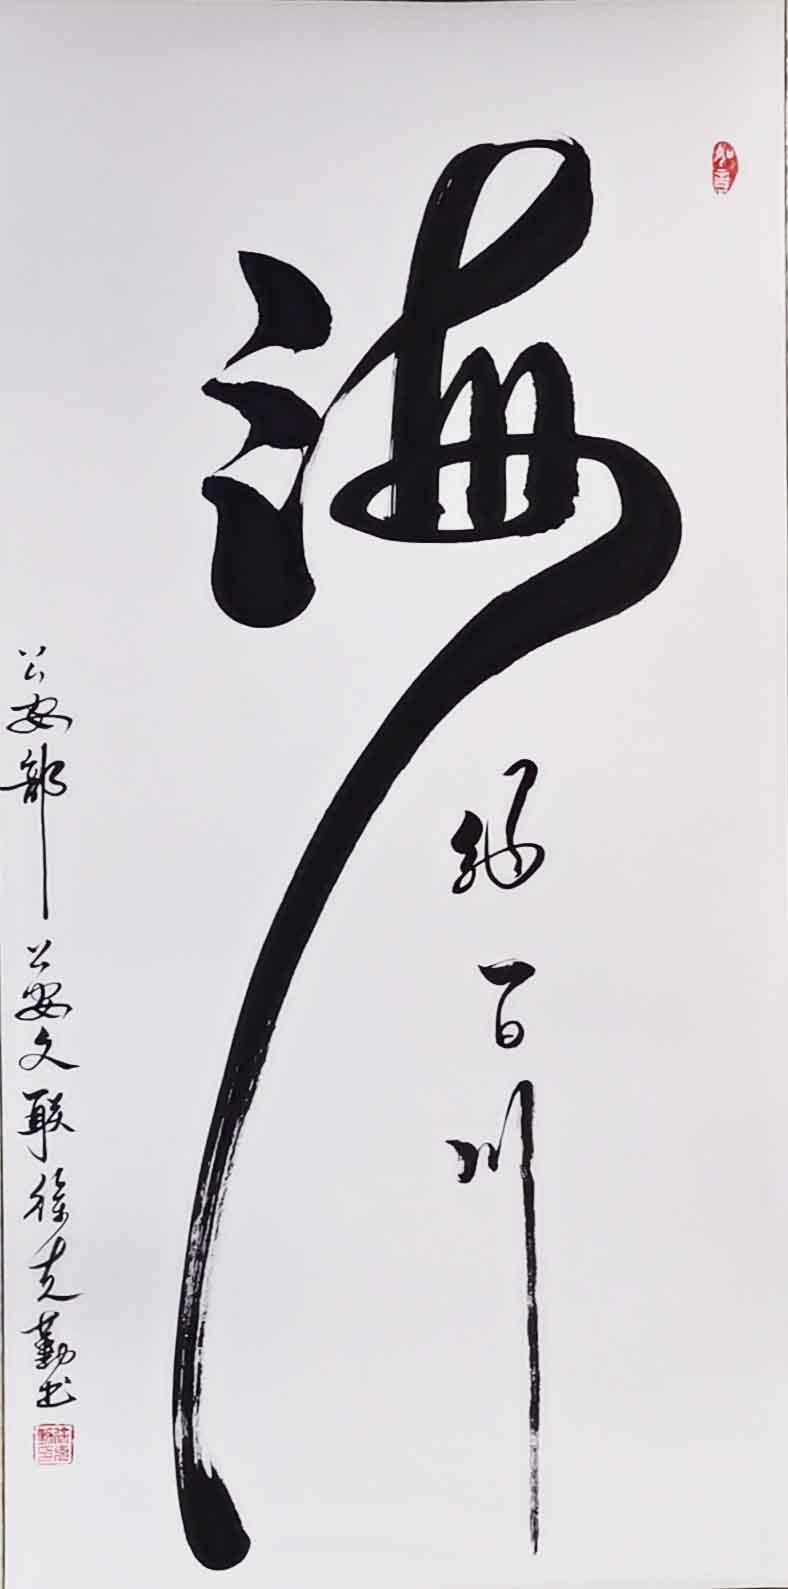 海
纳百川
公安部公安文联徐克勤书